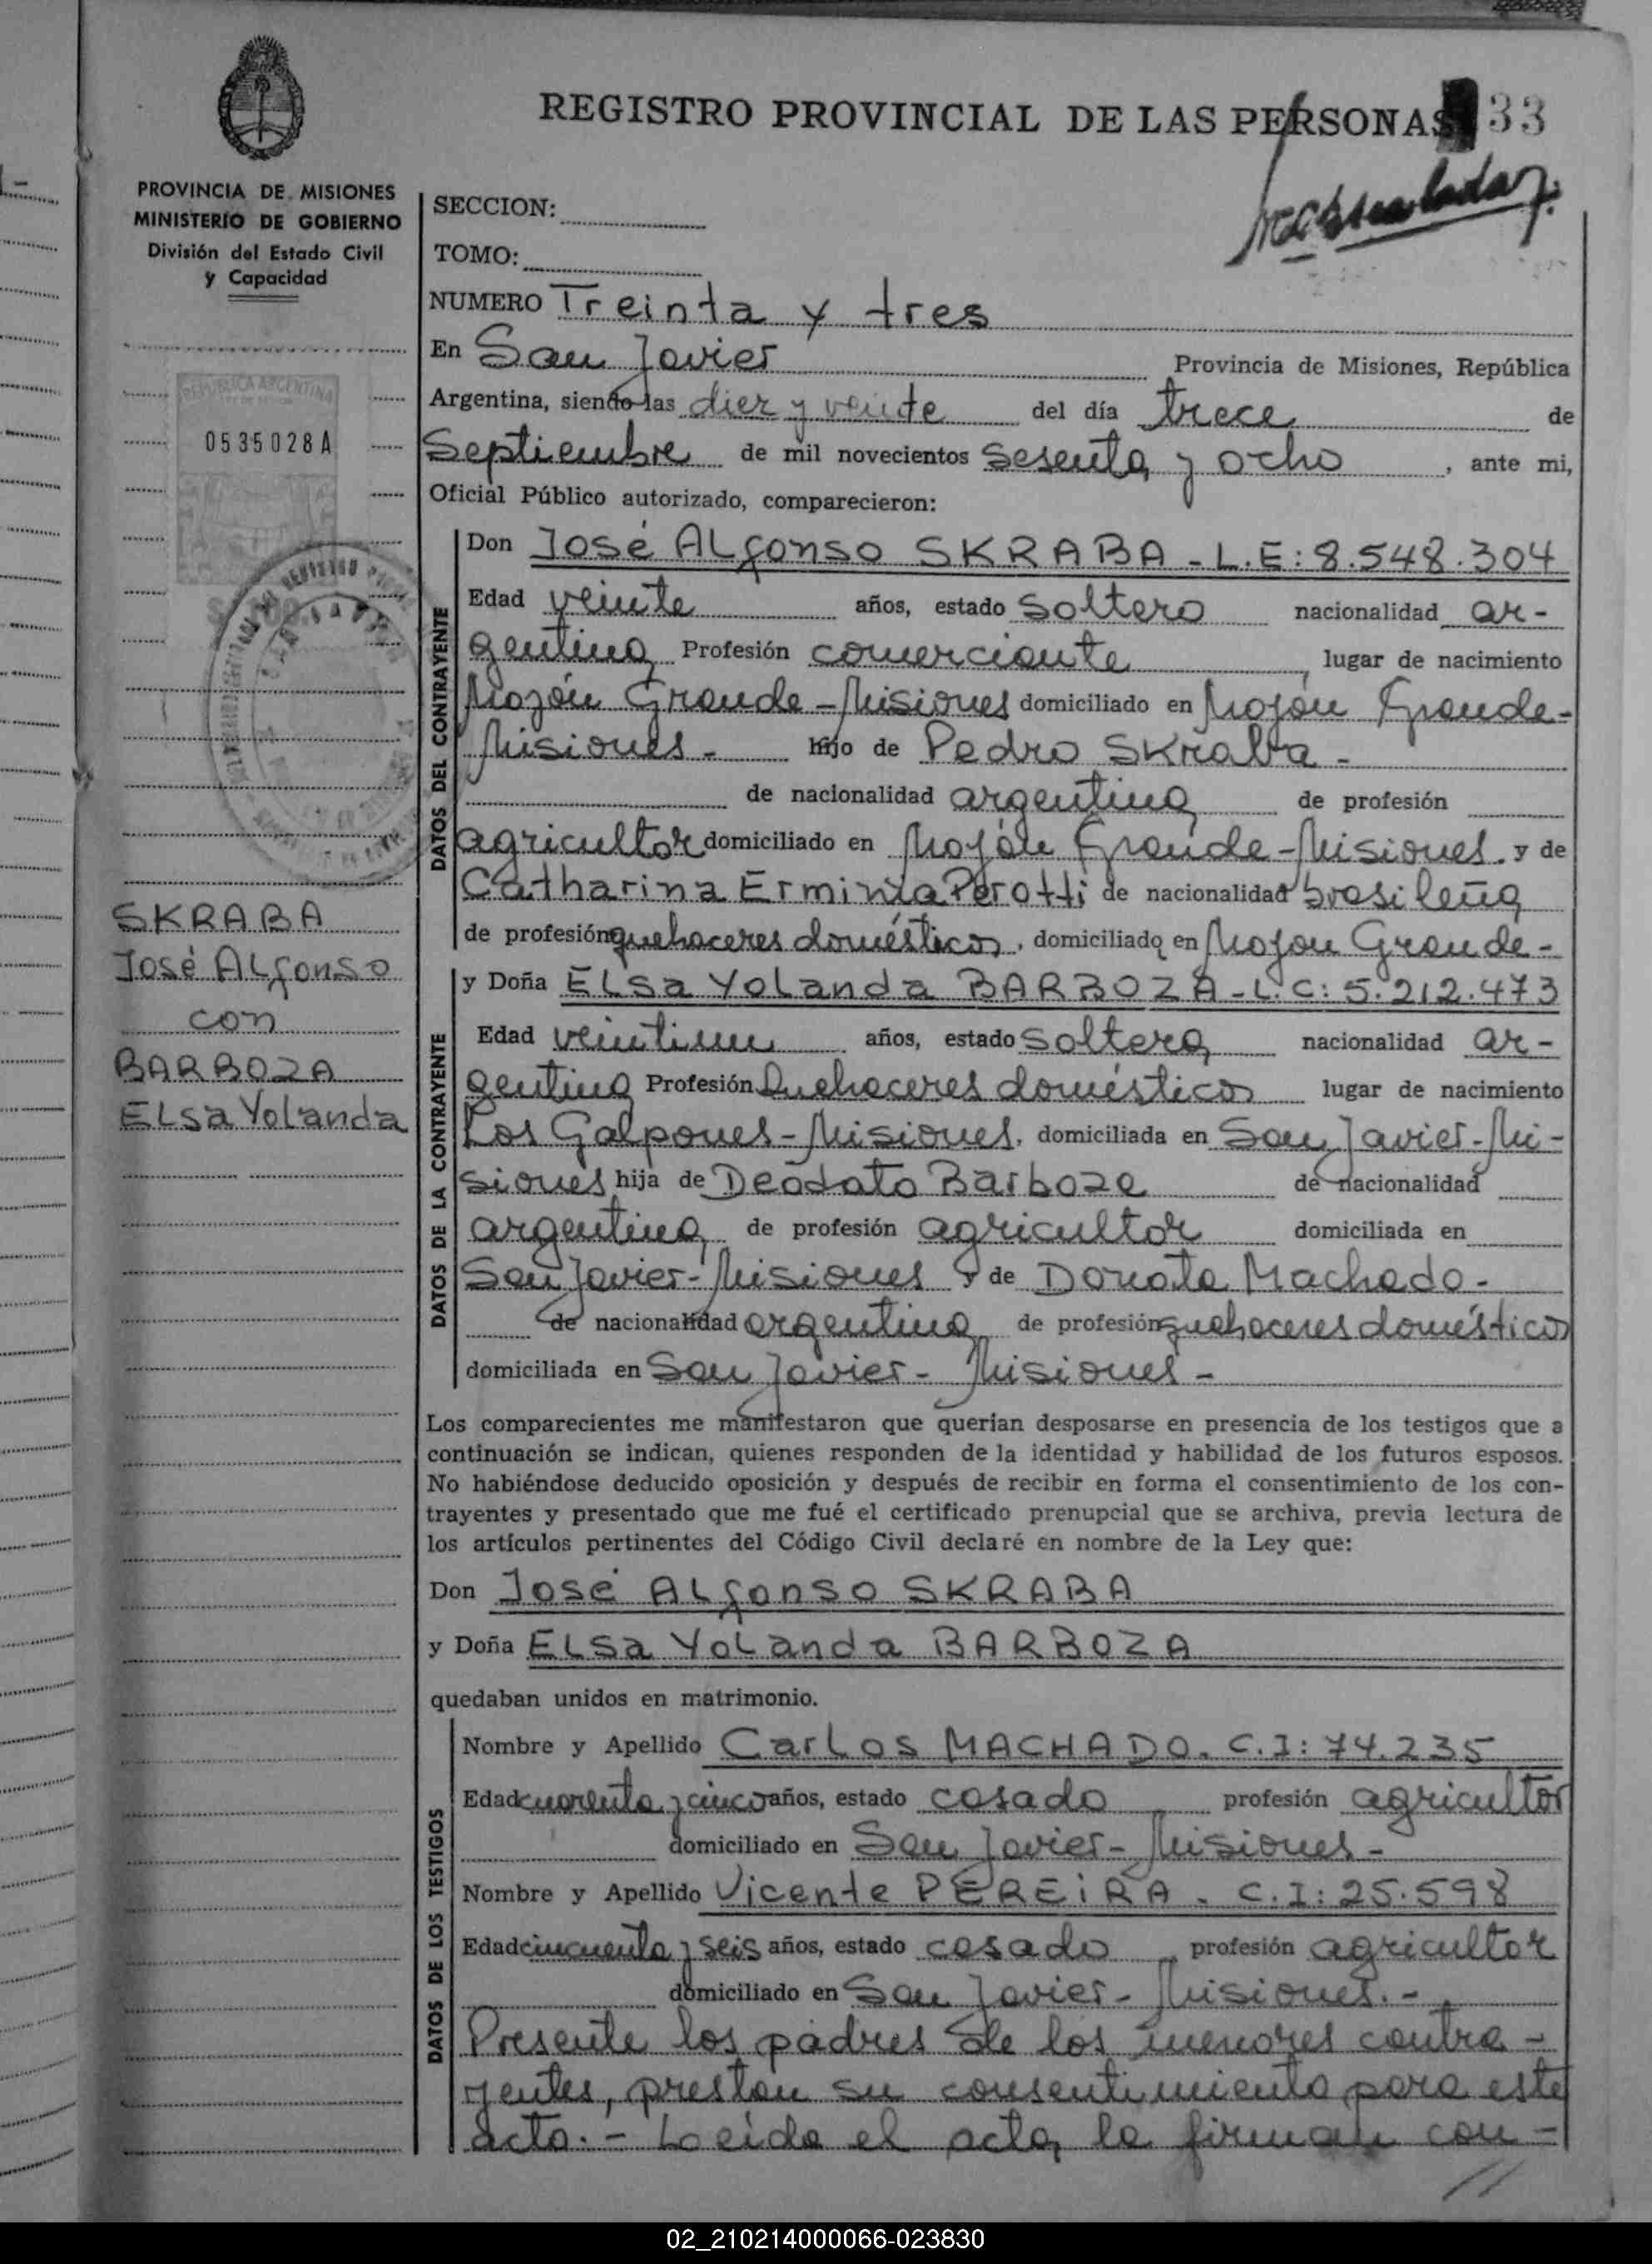 REGISTRO PROVINCIAL DE LAS PERSONAS 33
PROVINCIA DE MISIONES
MINISTERIO DE GOBIERNO
División del Estado Civil
y Capacidad
SECCION:
TOMO:
NUMERO Treinta y tres
En San Javier Provincia de Misiones, República
Argentina, siendo las diez y veinte del día trece de
Septiembre de mil novecientos Sesenta y ocho, ante mi,
Oficial Público autorizado, comparecieron:
REPUBLICA ARGENTINA
0535028A
DATOS DEL CONTRAYENTE
Don José Alfonso SKRABA - L.E: 8.548.304
Edad veinte años, estado soltero nacionalidad ar-
gentina Profesión comerciante, lugar de nacimiento
Mojón Grande - Misiones domiciliado en Mojón Grande -
Misiones - hijo de Pedro Skraba -
de nacionalidad argentina de profesión
agricultor domiciliado en Mojón Grande - Misiones. y de
Catharina Erminia Perotti de nacionalidad brasileña
de profesión quehaceres domésticos, domiciliado en Mojon Grande -
DATOS DE LA CONTRAYENTE
y Doña Elsa Yolanda BARBOZA - L.C: 5.212.473
Edad veintiun años, estado soltera nacionalidad ar-
gentina Profesión Quehaceres domésticos lugar de nacimiento
Los Galpones - Misiones, domiciliada en San Javier - Mi-
siones hija de Deodato Barboza de nacionalidad
argentina de profesión agricultor domiciliada en
San Javier - Misiones y de Donata Machado -
de nacionalidad argentina de profesión quehaceres domésticos
domiciliada en San Javier - Misiones -
SKRABA
José Alfonso
con
BARBOZA
Elsa Yolanda
Los comparecientes me manifestaron que querían desposarse en presencia de los testigos que a
continuación se indican, quienes responden de la identidad y habilidad de los futuros esposos.
No habiéndose deducido oposición y después de recibir en forma el consentimiento de los con-
trayentes y presentado que me fué el certificado prenupcial que se archiva, previa lectura de
los artículos pertinentes del Código Civil declaré en nombre de la Ley que:
Don José Alfonso SKRABA
y Doña Elsa Yolanda BARBOZA
quedaban unidos en matrimonio.
DATOS DE LOS TESTIGOS
Nombre y Apellido Carlos MACHADO. C.I: 74.235
Edad cuarenta y cinco años, estado casado profesión agricultor
domiciliado en San Javier - Misiones -
Nombre y Apellido Vicente PEREIRA - C.I: 25.598
Edad cincuenta y seis años, estado casado profesión agricultor
domiciliado en San Javier - Misiones. -
Presente los padres de los menores contra-
yentes, prestan su consentimiento para este
acto. - Leida el acta, la firman con -
//
02_210214000066-023830